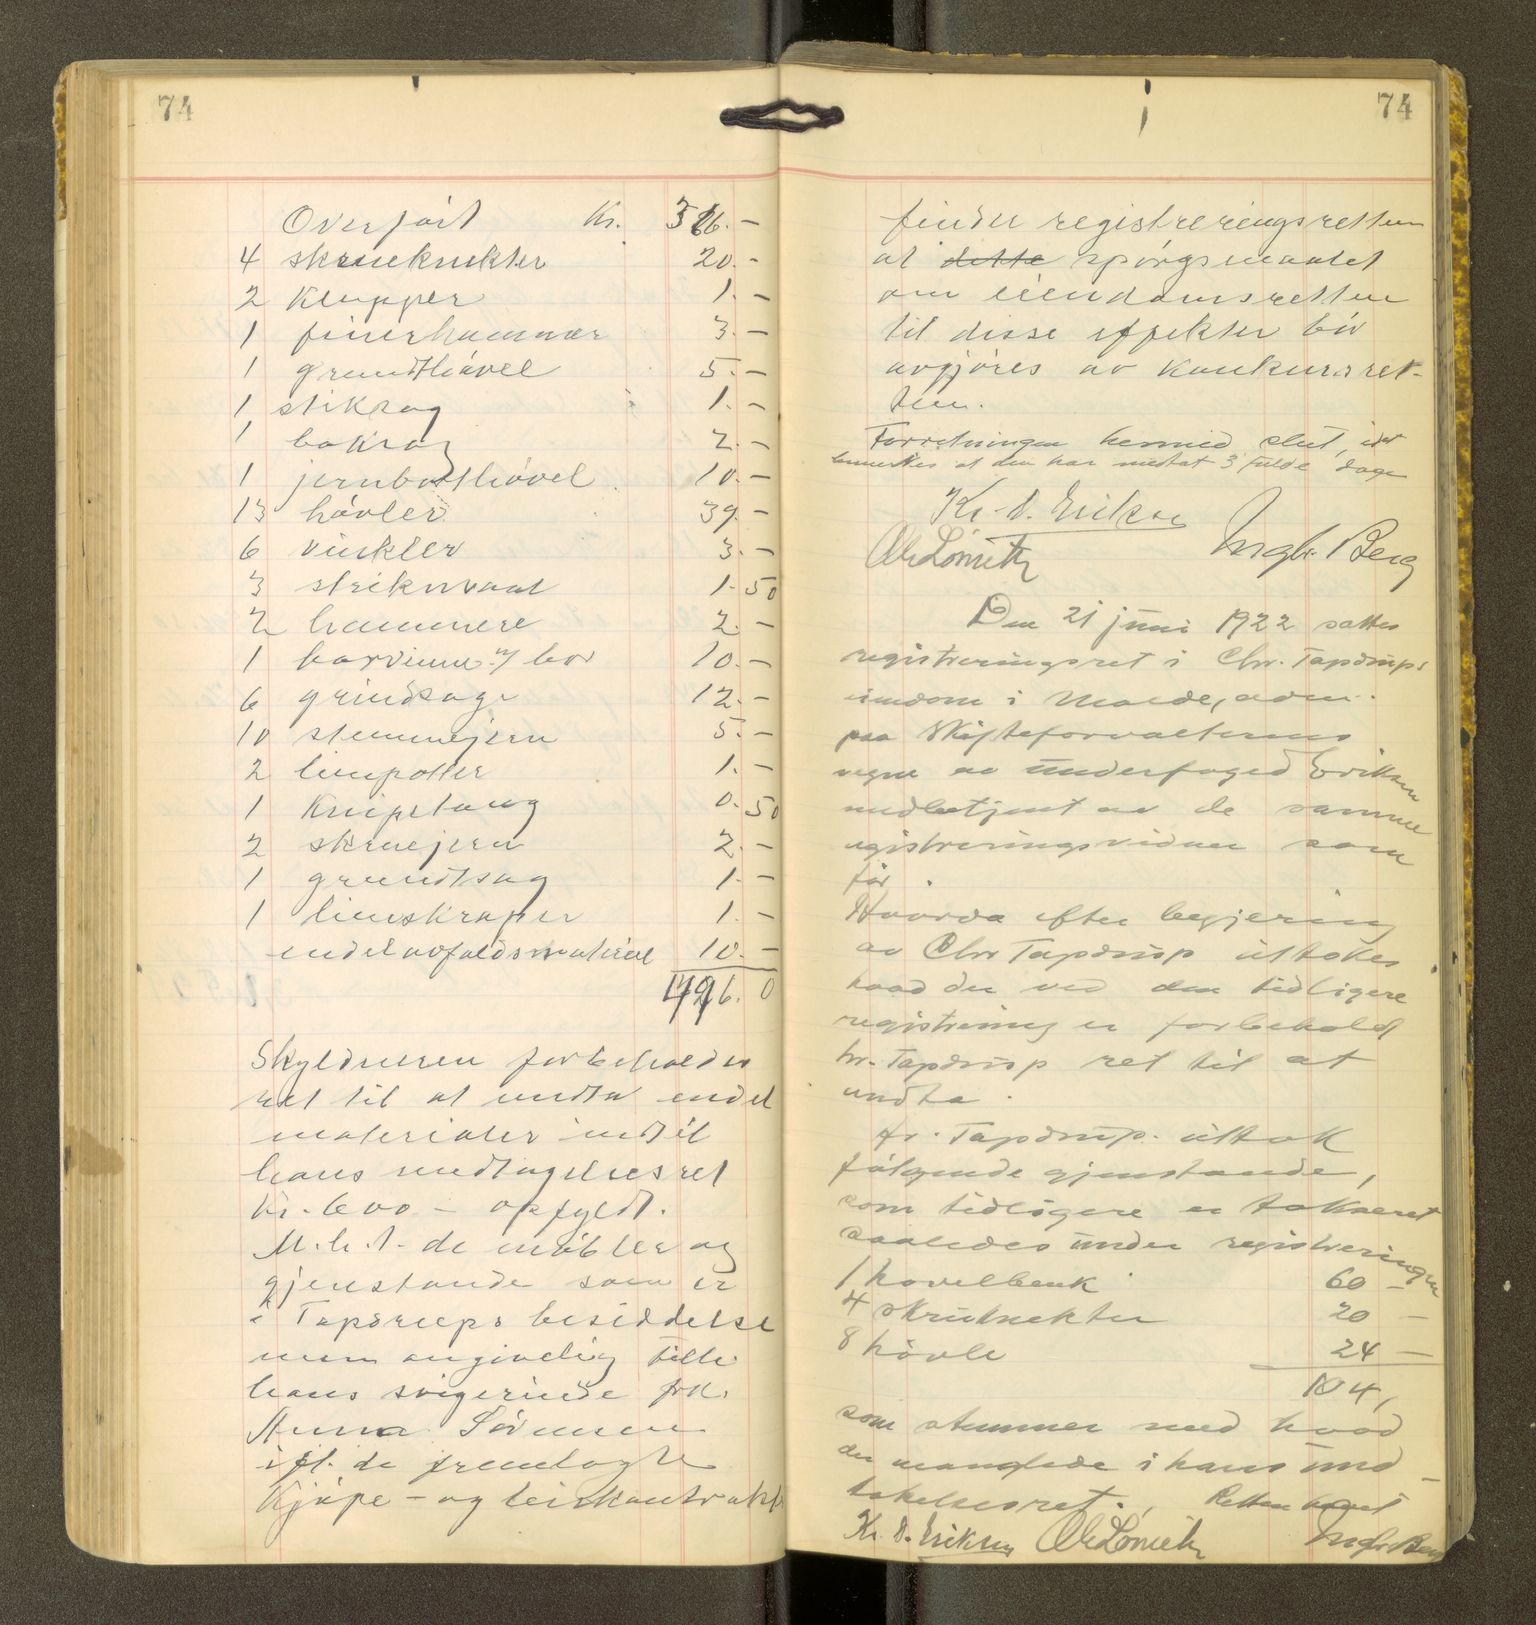 74
Overført Kr. –
4 skrueknekter 20.–
2 Klupper 1.–
1 finerhammer 3.–
1 grundthøvel 5.–
1 stiksag 1.–
1 baksag 2.–
1 10.–
13 høvler 39.–
6 vinkler 3.–
3 strekmaal 1.50
2 hammere 2.–
1 borvinne m/ bor 10.–
6 grindsage 12.–
10 stemmejern 5.–
2 limpotter 1.–
1 Knipetang 0.50
2 skruejern 2.–
1 grundtsag 1.–
1 limskraper 1.–
endel avfaldsmaterial 10.–
Skyldneren forbeholder
ret til at undta endel
materialer indtil
hans undtagelsesret
Kr. 600 – opfyldt.
M.h.t. de møbler og
gjenstande som er
i Tapdrups besiddelse
men angivelig tilh.
hans svigerinde frk.
Anna Sörensen
ifl. de fremlagte
Kjøpe- og leiekontrakt
74
finder registreringsretten
at dette spørgsmaalet
om eiendomsretten
til disse effekter bør
avgjøres av Konkursret-
ten.
Forretningen hermed slut, idet
bemerkes at den har medtat 3 fulde dage
Kr. D. Eriksen
Ingbr. Berg
Den 21 juni 1922 sattes
registreringsret i Chr. Tapdrups
eiendom i Molde, adm.
paa Skifteforvalterens
vegne av underfoged Eriksen
medbetjent av de samme
registreringsvidner som
før.
Hvorda efter begjering
av Chr Tapdrup uttokes
hvad der ved den tidligere
registrering er forbehold
hr. Tapdrup ret til at
undta.
Hr. Tapdrup. uttok
følgende gjenstande,
som tidligere er taksert
saaledes under registreringen
1 høvelbenk 60 –
4 skruknekter 20 –
8 høvle 24 –
104,
som stemmer med hvad
der manglede i hans und-
takelsesret. Retten hævet
Kr. D. Eriksen Ingbr. Berg